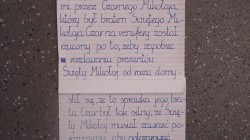 mi przez Czarnego Mikołaja,
który był bratem Świętego Mi-
kołaja Czar na renifery został
rzucony po to, żeby zapobiec
rozdawaniu prezentów.
Święty Mikołaj od razu domy-
ślił się, że to sprawka jego bra-
ta Czar był tak silny, że Świę-
ty Mikołaj musiał zawrzeć po-